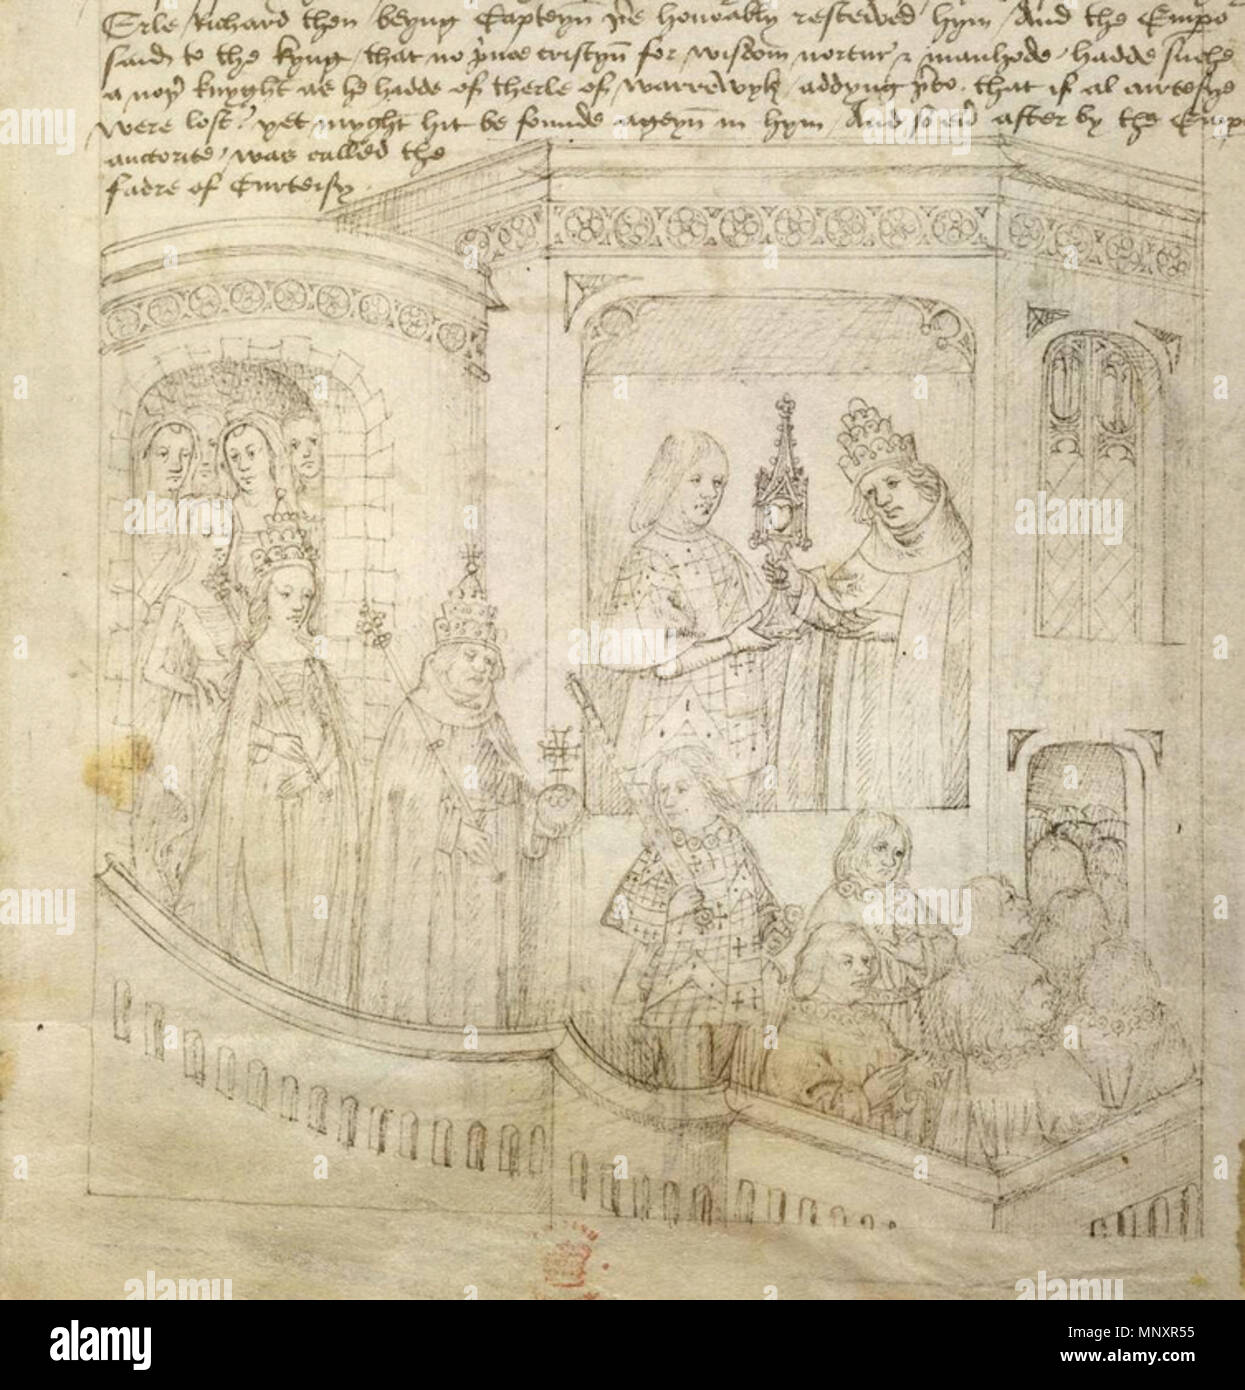 Erle Richard then beyng Capteyn þ'e honorably resceived hym / And the Empo
said to the kyng / that no p'nce cristyn for wisdom nortur & manhode / hadde suche
a noþ' knyght as he hadde of therle of Warrewyk / addyng þ'to that if al curtesye
were lost / yet myght hit be founde ageyn in hym / And so ev' after by the Emp
auctorite / was called the
fadre of Curteisy .
alamy
alamy
Image ID: MNXR55
www.alamy.com